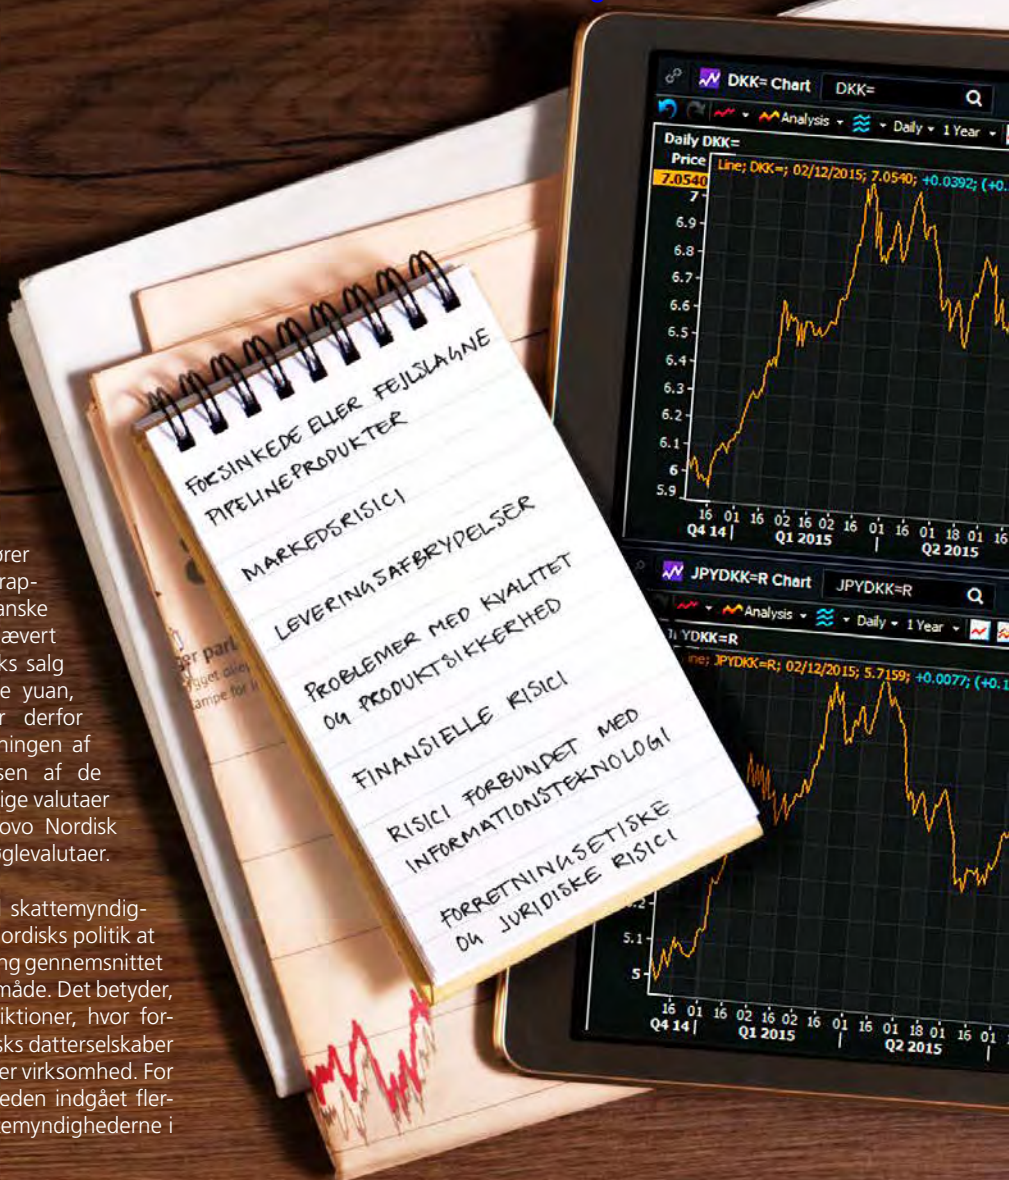 ører
rap-
anske
ævert
ks salg
e yuan,
r derfor
ningen af
sen af de
ige valutaer
ovo Nordisk
øglevalutaer.
skattemyndig-
ordisks politik at
ng gennemsnittet
måde. Det betyder,
iktioner, hvor for-
sks datterselskaber
er virksomhed. For
eden indgået fler-
temyndighederne i
FORSINKEDE ELLER FEJLSLAGNE
PIPELINEPRODUKTER
MARKEDSRISICI
LEVERINGSAFBRYDELSER
PROBLEMER MED KVALITET
OG PRODUKTSIKKERHED
FINANSIELLE RISICI
RISICI FORBUNDET MED
INFORMATIONSTEKNOLOGI
FORRETNINGSETISKE
OG JURIDISKE RISICI
DKK= Chart DKK=
Analysis Daily 1 Year
Daily DKK=
Price
Line; DKK=; 02/12/2015; 7.0540; +0.0392; (+0.
7.0540
7
6.9
6.8
6.7
6.6
6.5
6.4
6.3
6.2
6.1
6
5.9
16 01 16 02 16 02 16 01 16 01 18 01 16
Q4 14 Q1 2015 Q2 2015
JPYDKK=R Chart JPYDKK=R
Analysis Daily 1 Year
YDKK=R
ine; JPYDKK=R; 02/12/2015; 5.7159; +0.0077; (+0.1
5.1
5
16 01 16 02 16 02 16 01 16 01 18 01 16 01
Q4 14 Q1 2015 Q2 2015